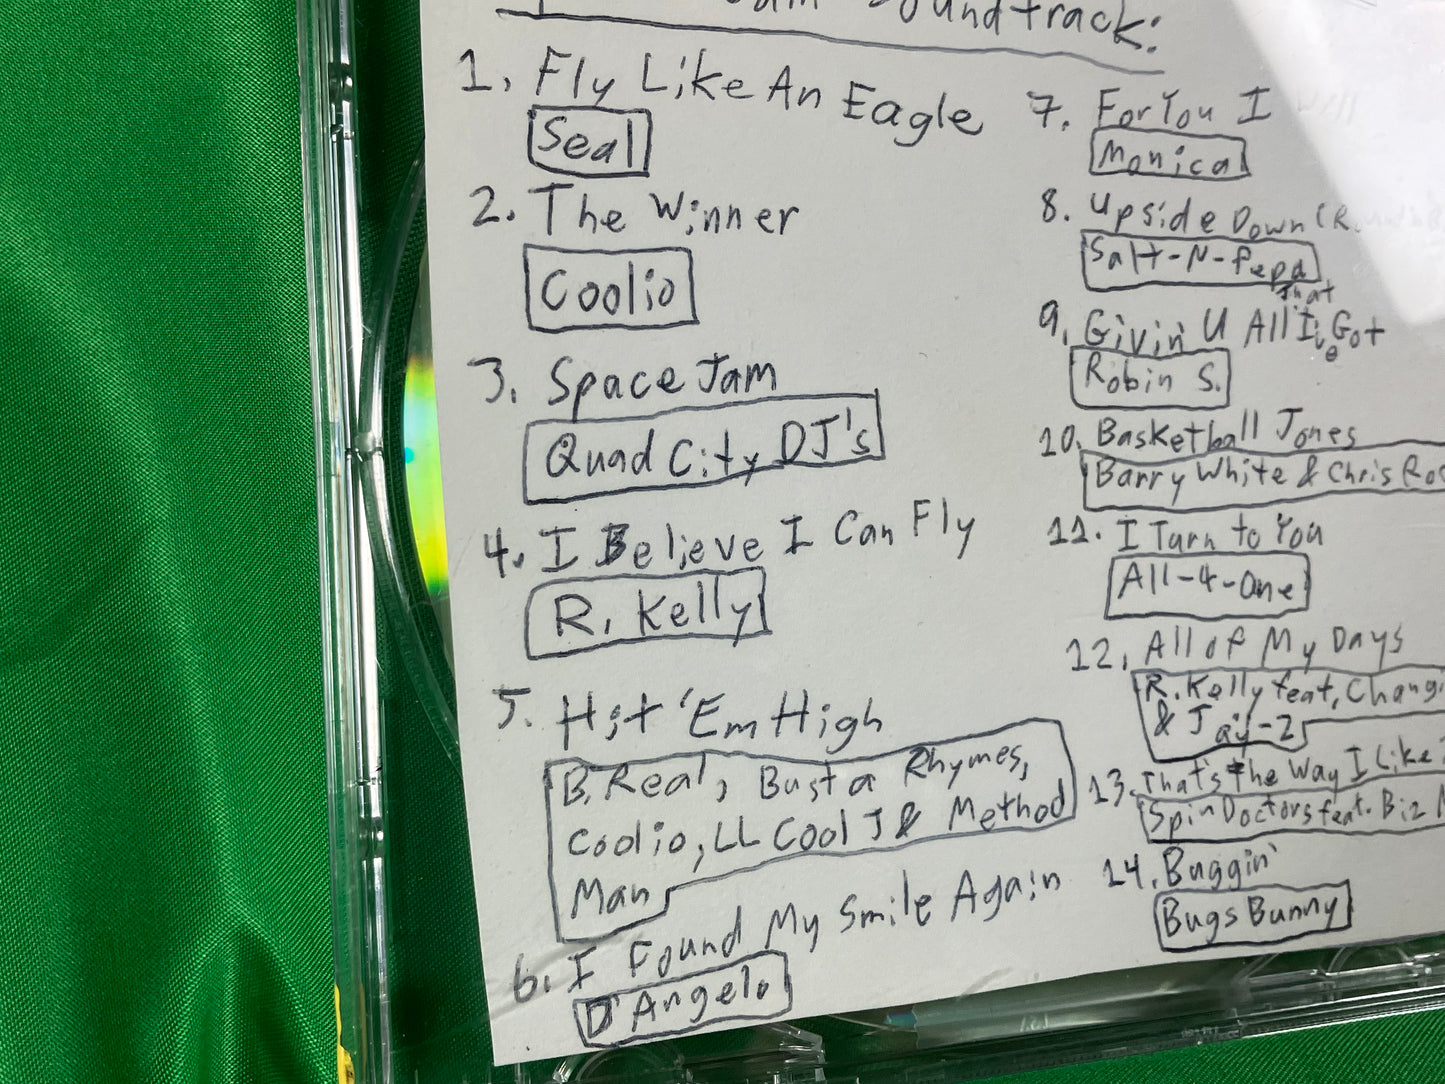 Soundtrack:
1. Fly Like An Eagle
Seal
2. The Winner
Coolio
3. Space Jam
Quad City DJ's
4. I Believe I Can Fly
R. Kelly
5. Hit 'Em High
B. Real, Busta Rhymes,
Coolio, LL Cool J & Method
Man
6. I Found My Smile Again
D'Angelo
7. For You I
Monica
8. Upside Down
Salt-N-Pepa
that
9. Givin' U All I've Got
Robin S.
10. Basketball Jones
Barry White & Chris
11. I Turn to You
All-4-One
12. All of My Days
R. Kelly feat. Changi
& Jay-Z
13. That's the Way I Like
Spin Doctors feat. Biz
14. Buggin'
Bugs Bunny